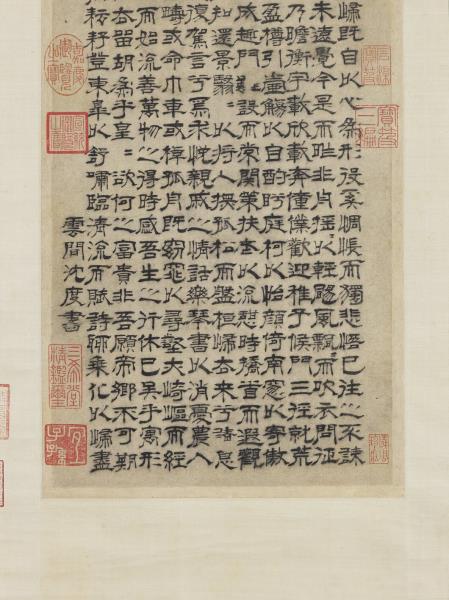 歸既自以心為形役奚惆悵而獨悲悟已往之不諫
未遠覺今是而昨非舟搖以輕颺風飄而吹衣問征
乃瞻衡宇載欣載奔僮僕歡迎稚子候門三徑就荒
盈樽引壺觴以自酌眄庭柯以怡顏倚南窻以寄傲
成趣門雖設而常關策扶老以流憩時矯首而遐觀
知還景翳〻以將入撫孤松而盤桓歸去來兮請息
復駕言兮焉求悅親戚之情話樂琴書以消憂農人
疇或命巾車或棹孤舟既窈窕以尋壑亦崎嶇而經
而始流善萬物之得時感吾生之行休已矣乎寓形
去留胡為乎皇〻欲何之富貴非吾願帝鄉不可期
耘耔登東皋以舒嘯臨清流而賦詩聊乘化以歸盡
雲間沈度書
寶笈三編
嘉慶御覽之寶
三希堂精鑑璽
宜子孫